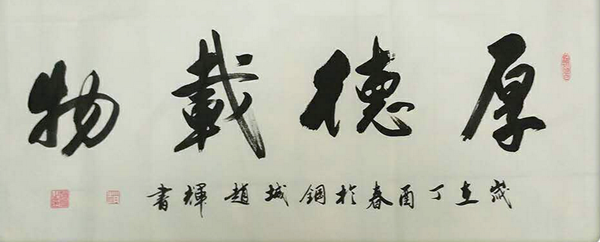 厚德載物
歲在丁酉春於鋼城趙輝書